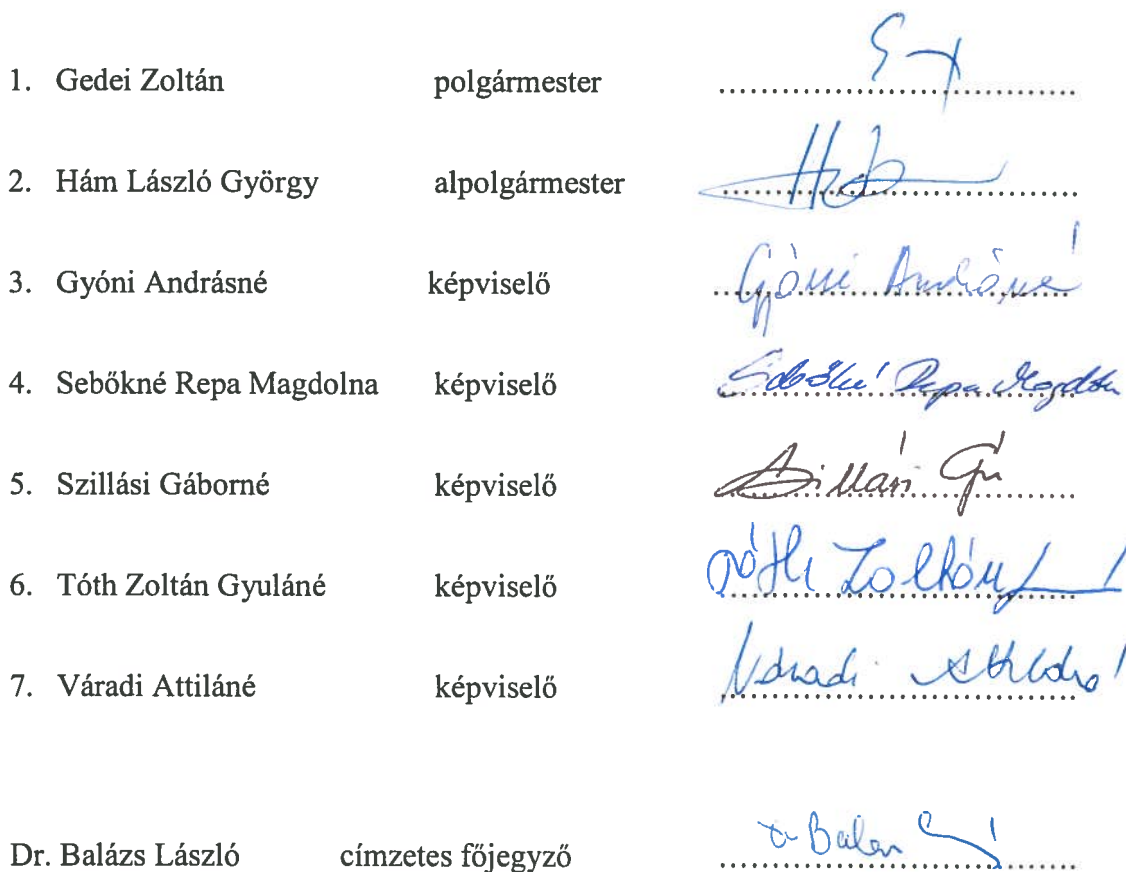 1. Gedei Zoltán polgármester
2. Hám László György alpolgármester
3. Gyóni Andrásné képviselő Gyóni Andrásné
4. Sebőkné Repa Magdolna képviselő Sebőkné Repa Magdolna
5. Szillási Gáborné képviselő Szillási
6. Tóth Zoltán Gyuláné képviselő Tóth Zoltán
7. Váradi Attiláné képviselő Váradi Attiláné
Dr. Balázs László címzetes főjegyző